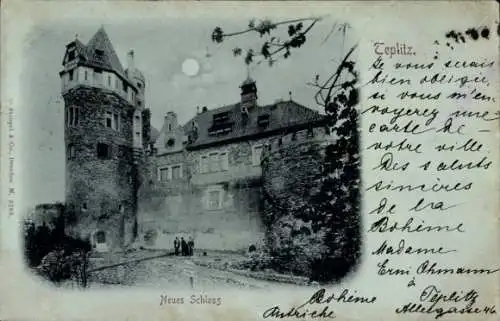 Teplitz.
Je vous serais
bien obligée,
si vous m'en
voyerez une
carte de
votre ville.
Des saluts
sincères
de la
Bohème
Madame
Erni Ohmann
à
Teplitz
Allégasse 46
Bohème
Autriche
Neues Schloss
Stengel & Co., Dresden